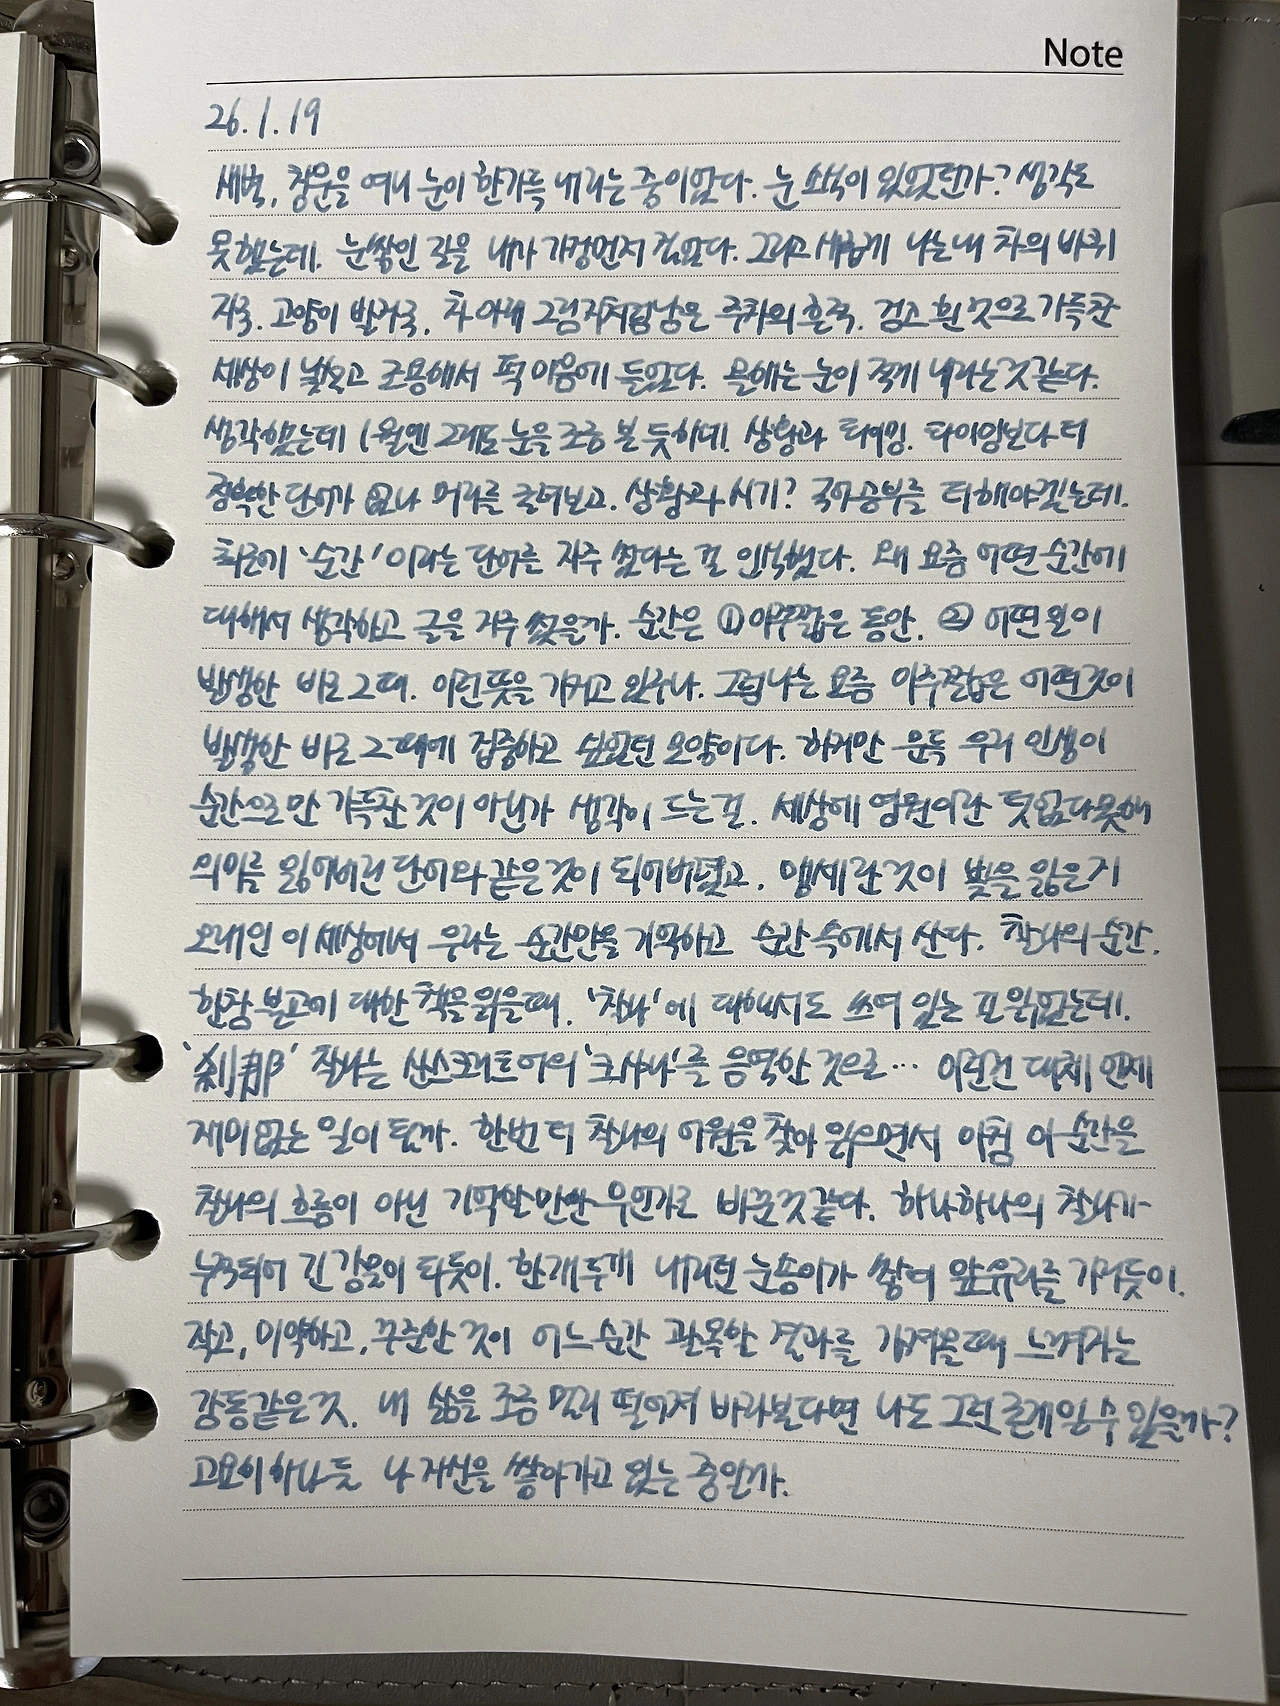 Note
26.1.19
새벽, 창문을 여니 눈이 한가득 내리는 중이었다. 눈 소식이 있었던가? 생각도
못했는데. 눈쌓인 길을 내가 가장먼저 걸었다. 그리고 새롭게 나는 내 차의 바퀴
자국. 고양이 발자국, 차 아래 그림자처럼 남은 주차의 흔적. 검고 흰 것으로 가득찬
세상이 낯설고 조용해서 퍽 마음에 들었다. 올해는 눈이 적게 내리는것 같다.
생각했는데 1월엔 그래도 눈을 조금 본 듯하네! 상황과 타이밍. 타이밍보다 더
정확한 단어가 있나 머리를 굴려보고. 상황과 시기? 국어공부를 더 해야겠는데.
최근에 '순간' 이라는 단어를 자주 썼다는 걸 인식했다. 왜 요즘 어떤 순간에
대해서 생각하고 글을 자주 썼을까. 순간은 ① 아주짧은 동안. ② 어떤 일이
발생한 바로 그때. 이런 뜻을 가지고 있구나. 그럼 나는 요즘 아주짧은 어떤것이
발생한 바로 그때에 집중하고 싶었던 모양이다. 하지만 문득 우리 인생이
순간으로만 가득찬 것이 아닌가 생각이 드는 걸. 세상에 영원이란 덧없다못해
의미를 잃어버린 단어와 같은 것이 되어버렸고, 맹세란 것이 빛을 잃은지
오래인 이 세상에서 우리는 순간만을 기억하고 순간 속에서 산다. 찰나의 순간.
한창 불교에 대한 책을 읽을때, '찰나'에 대해서도 쓰여 있는 걸 읽었는데.
'刹那' 찰나는 산스크리트어의 '크샤나'를 음역한 것으로… 이런건 대체 언제
재미없는 일이 될까. 한번 더 찰나의 어원을 찾아 읽으면서 아침 이 순간을
찰나의 흐름이 아닌 기억할만한 무언가로 바꾼것 같다. 하나하나의 찰나가
누적되어 긴 강물이 되듯이. 한개 두개 내리던 눈송이가 쌓여 앞유리를 가리듯이.
작고, 미약하고, 꾸준한 것이 어느 순간 괄목할 결과를 가져올 때 느껴지는
감동같은 것. 내 삶을 조금 멀리 떨어져 바라본다면 나도 그런 존재일 수 있을까?
고요히 하나 둘 나 자신을 쌓아가고 있는 중일까.